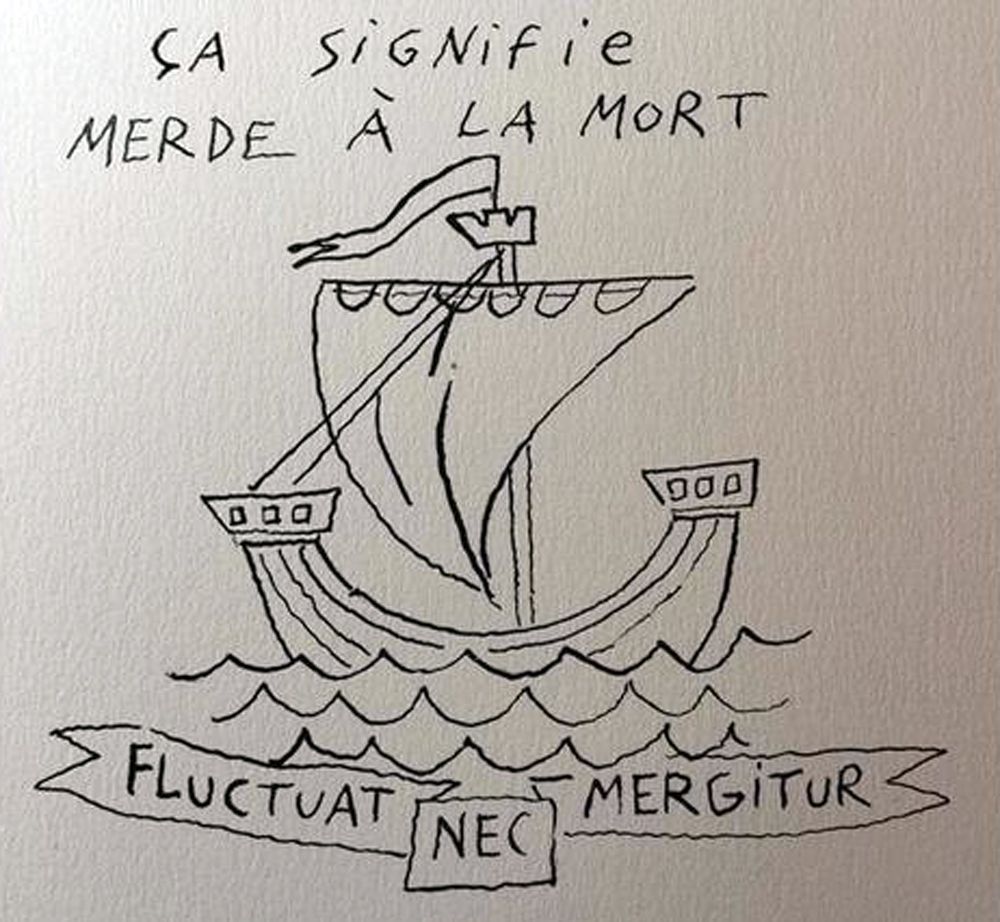 ÇA SiGNifie
MERDE À LA MORT
FLUCTUAT NEC MERGiTUR